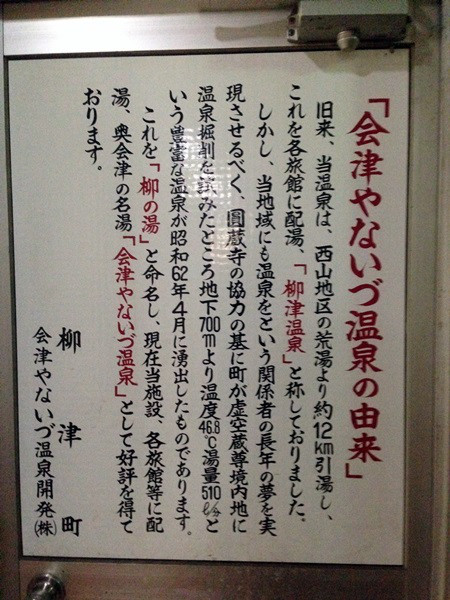 「会津やないづ温泉の由来」
旧来、当温泉は、西山地区の荒湯より約12km引湯し、
これを各旅館に配湯、「柳津温泉」と称しておりました。
しかし、当地域にも温泉をという関係者の長年の夢を実
現させるべく、圓蔵寺の協力の基に町が虚空蔵尊境内地に
温泉掘削を試みたところ地下700mより温度46.8℃湯量510ℓ/分と
いう豊富な温泉が昭和62年4月に湧出したものであります。
これを「柳の湯」と命名し、現在当施設、各旅館等に配
湯、奥会津の名湯「会津やないづ温泉」として好評を得て
おります。
柳津町
会津やないづ温泉開発㈱